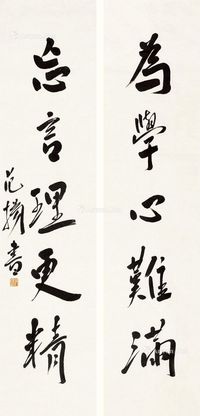 為學心難滿
忘言理更精
范擴書